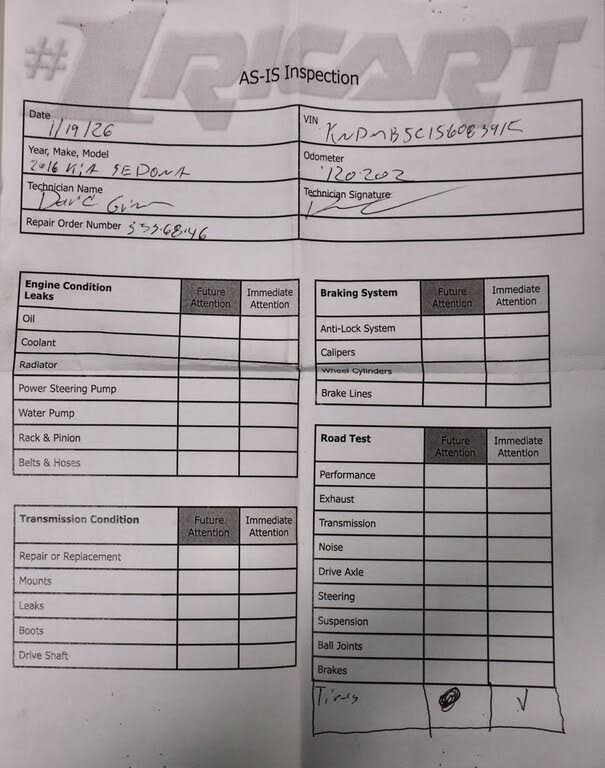 #1RICART
AS-IS Inspection
Date 1/19/26
VIN KNDMB5C15G6083915
Year, Make, Model 2016 KIA SEDONA
Odometer 120202
Technician Name David
Technician Signature
Repair Order Number
Engine Condition Leaks Future Attention Immediate Attention
Oil
Coolant
Radiator
Power Steering Pump
Water Pump
Rack & Pinion
Belts & Hoses
Transmission Condition Future Attention Immediate Attention
Repair or Replacement
Mounts
Leaks
Boots
Drive Shaft
Braking System Future Attention Immediate Attention
Anti-Lock System
Calipers
Wheel Cylinders
Brake Lines
Road Test Future Attention Immediate Attention
Performance
Exhaust
Transmission
Noise
Drive Axle
Steering
Suspension
Ball Joints
Brakes
Tires ✓